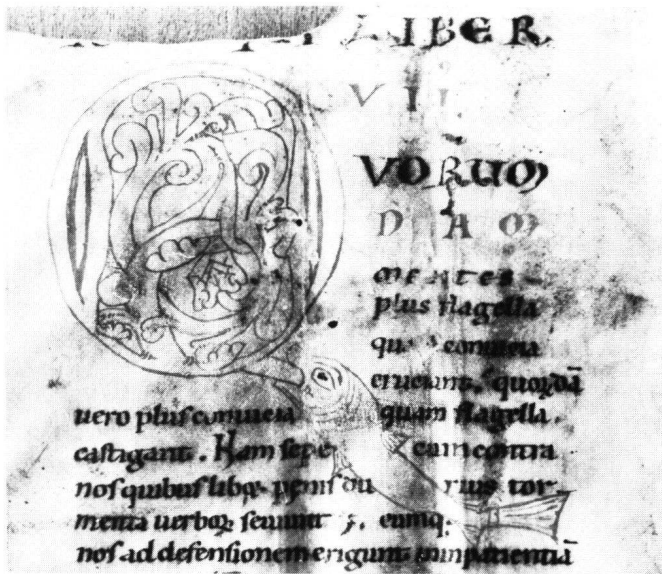 LIBER
VII
VORUM
DAM
mentes
plus flagella
quam conuicia
cruciant. quorꝝdā
uero plus conuicia quam flagella
castigant. Nam sepe cum contra
nos quibuslibꝫ penis du rius tor
menta uerboꝝ seuiunt eumq;
nos ad defensionem erigunt inpatientiā